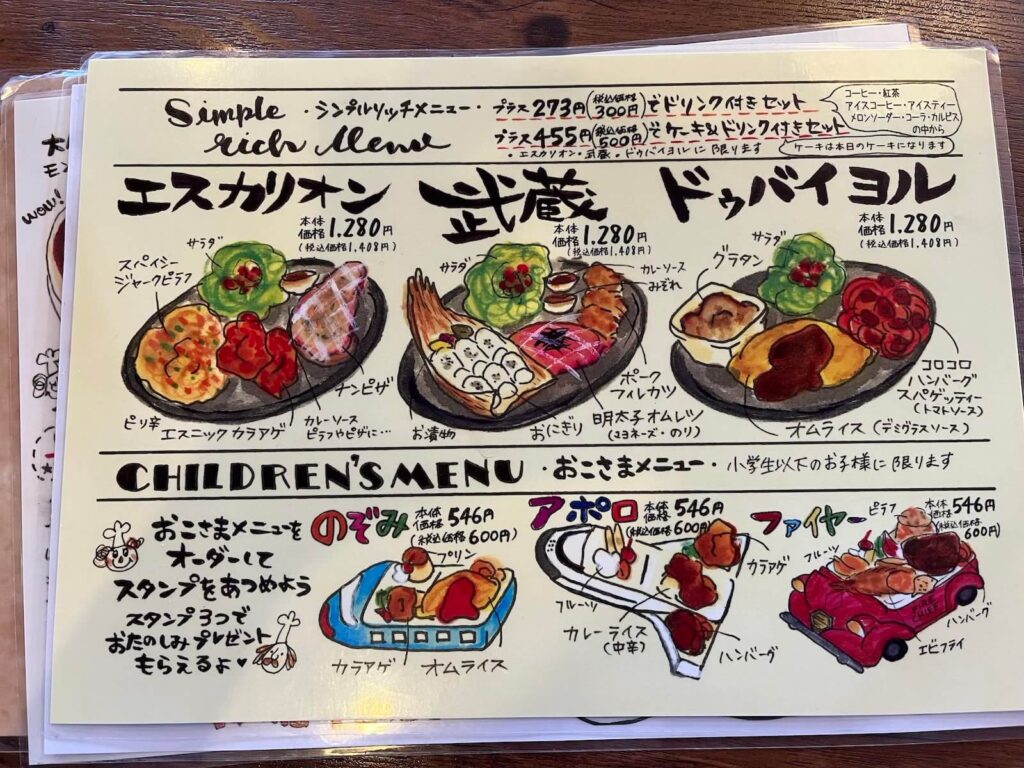 Simple
rich Menu
・シンプルリッチメニュー・
プラス273円(税込価格300円)でドリンク付きセット
プラス455円(税込価格500円)でケーキ&ドリンク付きセット
・エスカリオン・武蔵・ドゥバイヨルに限ります
コーヒー・紅茶
アイスコーヒー・アイスティー
メロンソーダー・コーラ・カルピス
の中から
ケーキは本日のケーキになります
エスカリオン
本体価格1.280円
(税込価格1,408円)
サラダ
スパイシー
ジャークピラフ
ピリ辛
エスニックカラアゲ
カレーソース
ピラフやピザに…
ナンピザ
武蔵
本体価格1.280円
(税込価格1,408円)
サラダ
カレーソース
みぞれ
お漬物
おにぎり
明太子オムレツ
(マヨネーズ・のり)
ポーク
フィレカツ
ドゥバイヨル
本体価格1.280円
(税込価格1,408円)
サラダ
グラタン
コロコロ
ハンバーグ
スパゲッティー
(トマトソース)
オムライス(デミグラスソース)
CHILDREN'S MENU
・おこさまメニュー・
小学生以下のお子様に限ります
おこさまメニューを
オーダーして
スタンプをあつめよう
スタンプ3つで
おたのしみプレゼント
もらえるよ♥
のぞみ
本体価格546円
(税込価格600円)
プリン
カラアゲ
オムライス
アポロ
本体価格546円
(税込価格600円)
カラアゲ
フルーツ
カレーライス
(中辛)
ハンバーグ
ファイヤー
本体価格546円
(税込価格600円)
ピラフ
フルーツ
ハンバーグ
エビフライ
wow!